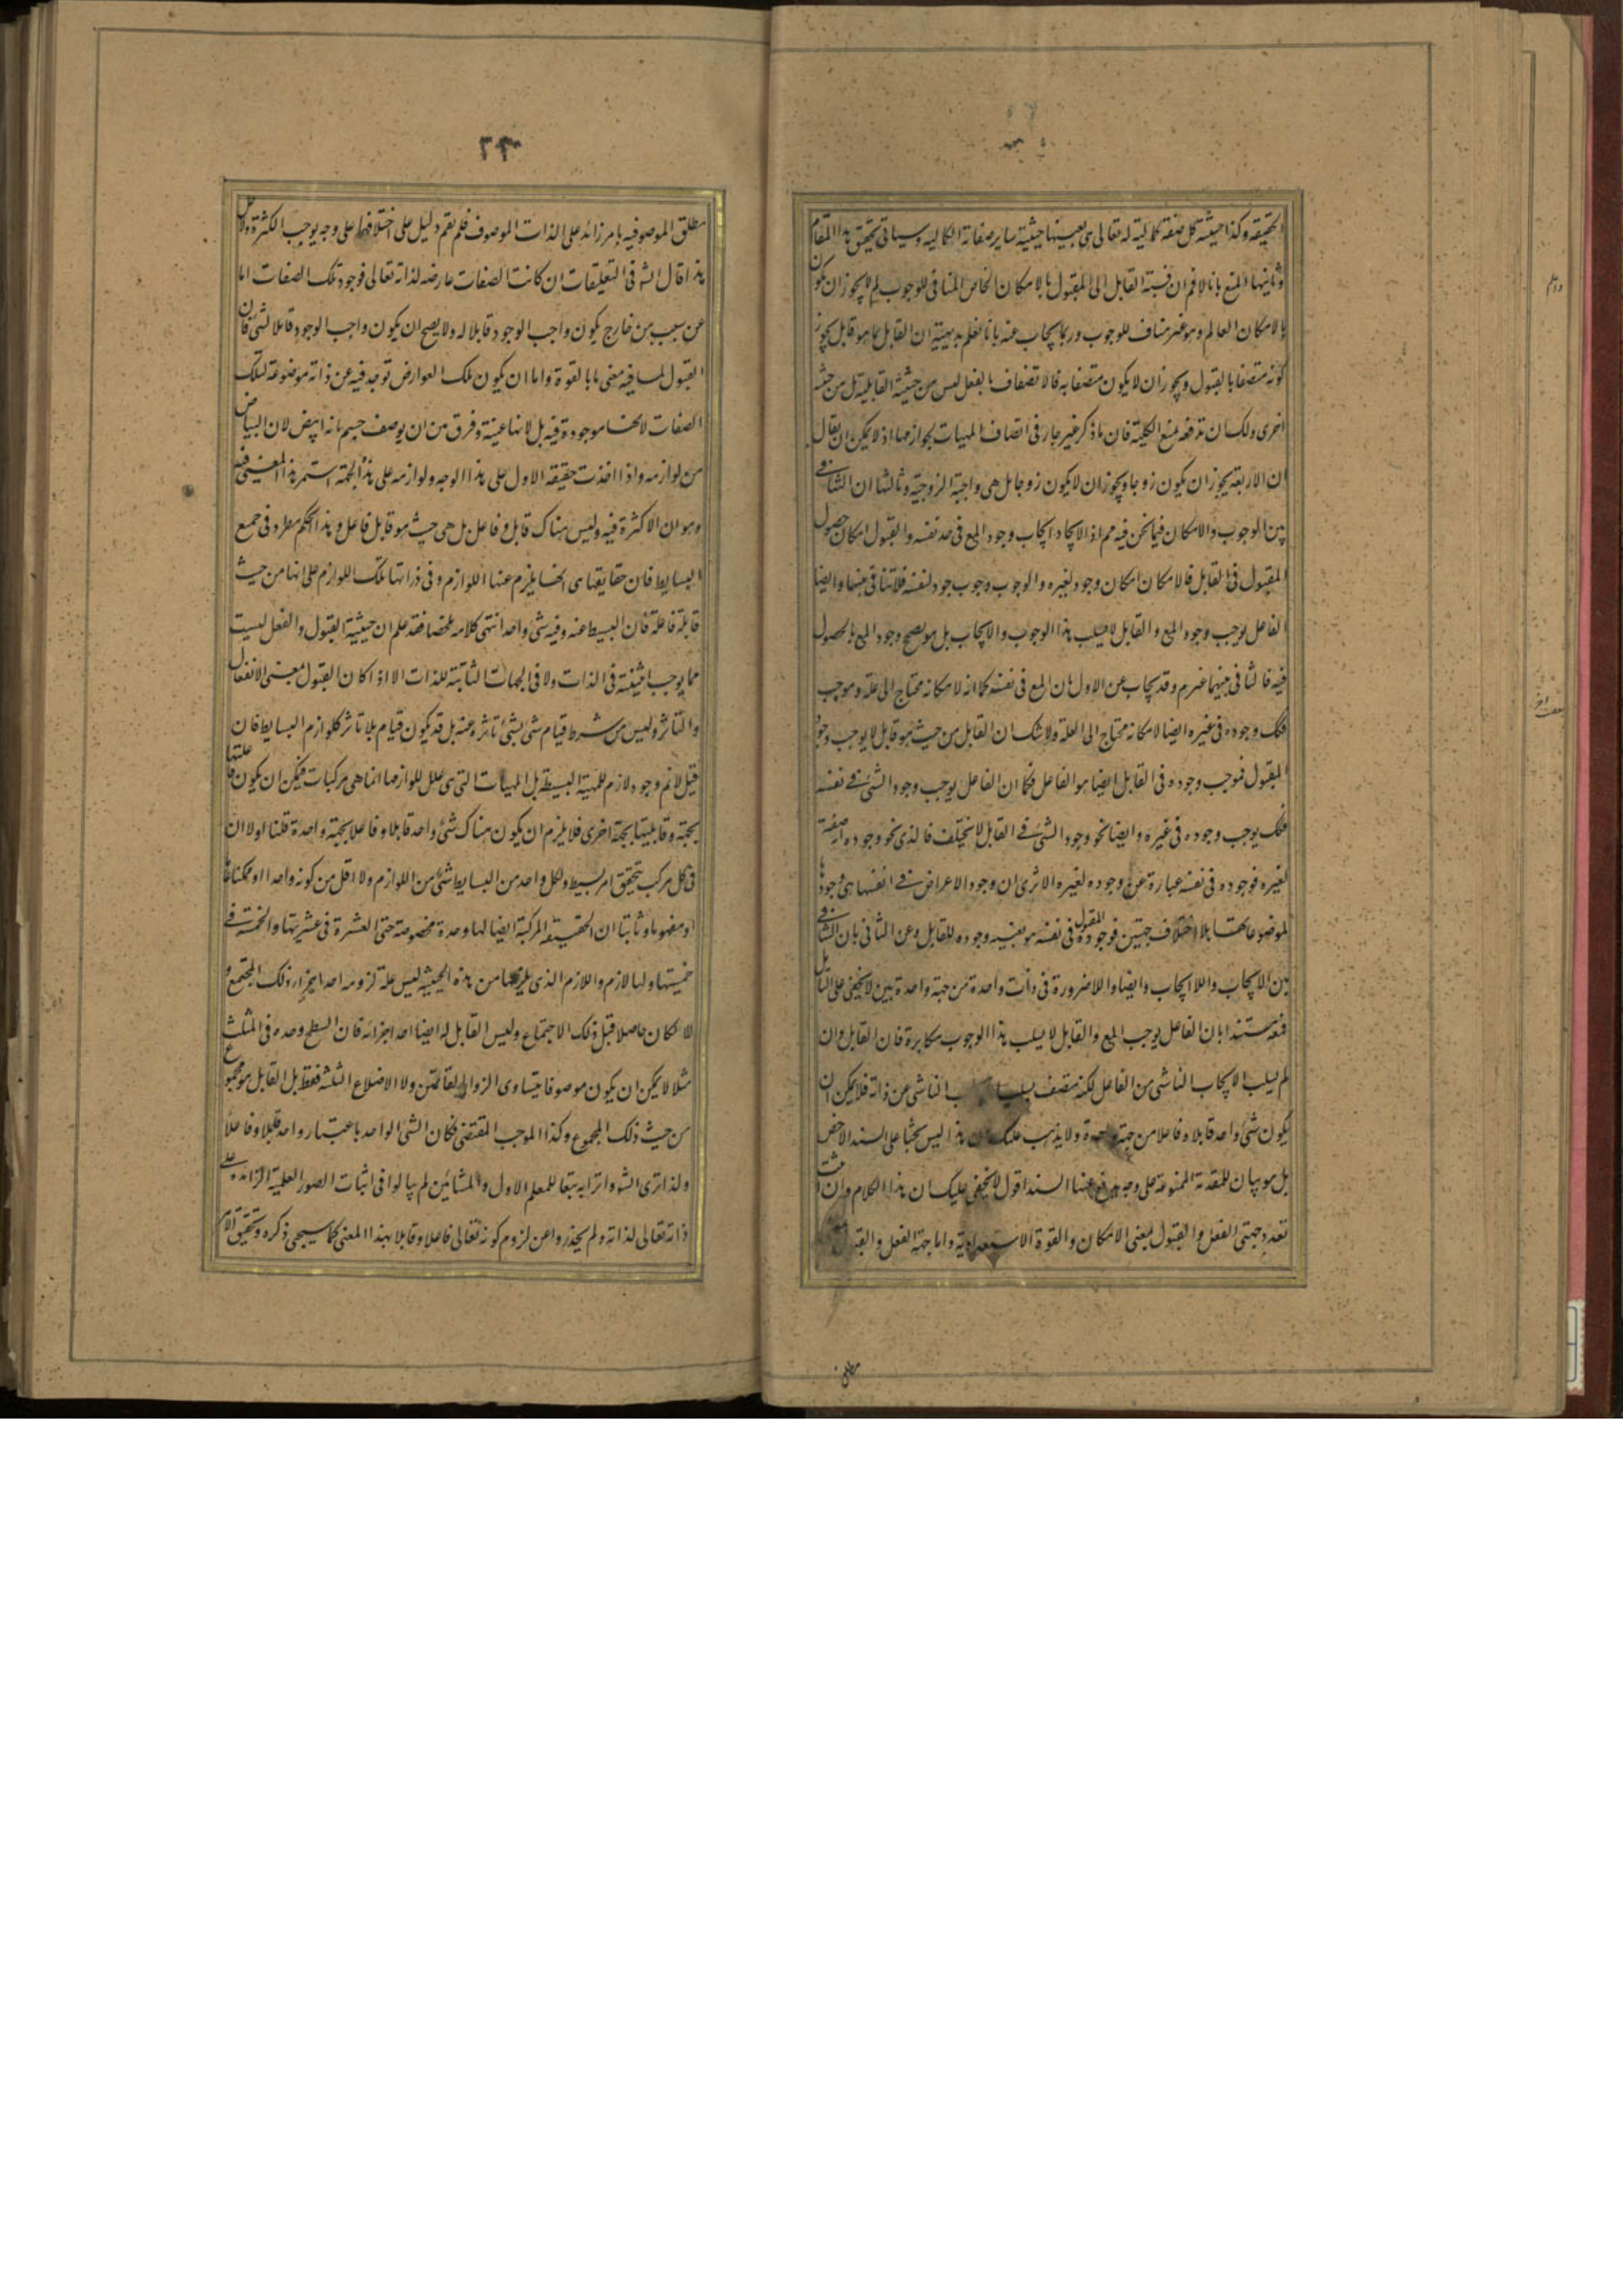 الحقيقه وكذا حيثية كل صفة كمالية له تعالى هى بعينها حيثية ساير صفاته الكماليه وسياتى تحقيق هذا المقام
وثانيها المنع بانا لانم ان نسبة القابل الى المقبول بالامكان الخاص المنافى للوجوب لم لا يجوز ان يكون
بالامكان العام وهو غير مناف للوجوب وربما يجاب عنه بانا نعلم بديهة ان القابل بما هو قابل يجوز
كونه متصفا بالقبول ويجوز ان لا يكون متصفا به فالاتصاف بالفعل ليس من حيثية القابلية بل من حيثية
اخرى ولك ان تدفعه بمنع الكلية فان ما ذكر غير جار فى اتصاف المهيات بلوازمها اذ لا يمكن ان يقال
ان الاربعة يجوز ان يكون زوجا ويجوز ان لا يكون زوجا بل هى واجبة الزوجية وثالثها ان التنافى
بين الوجوب والامكان فيما نحن فيه مم اذ الايجاد ايجاب وجود المع فى حد نفسه والقبول امكان حصول
المقبول فى القابل فالامكان امكان وجود لغيره والوجوب وجوب وجود لنفسه فلا تنافى بينهما وايضا
الفاعل يوجب وجود المع والقابل لا يسلب هذا الوجوب والايجاب بل هو يصحح وجود المع بالحصول
فيه فالتنافى بينهما غير لازم وقد يجاب عن الاول بان المع فى نفسه كما انه لامكانه محتاج الى علة وموجب
فكك وجوده فى غيره ايضا لامكانه محتاج الى العلة ولا شك ان القابل من حيث هو قابل لا يوجب وجود
المقبول فموجب وجوده فى القابل ايضا هو الفاعل فكما ان الفاعل يوجب وجود الشئ فى نفسه
فكك يوجب وجوده فى غيره وايضا نحو وجود الشئ فى القابل لا يختلف فالذى نحو وجوده انه صفة
لغيره فوجوده فى نفسه عبارة عن وجوده لغيره الا ترى ان وجود الاعراض فى انفسها هى وجودها
لموضوعاتها بلا اختلاف جهتين فوجود المقبول فى نفسه هو بعينه وجوده للقابل وعن الثانى بان التنافى
بين الايجاب واللا ايجاب وايضا واللاضرورة فى ذات واحدة من جهة واحدة بين لا يخفى على المتامل
فمنعه مستندا بان الفاعل يوجب المع والقابل لا يسلب هذا الوجوب مكابرة فان القابل وان
لم يسلب الايجاب الناشى من الفاعل لكنه متصف بسلب الناشى عن ذاته فلا يمكن ان
يكون شئ واحد قابلا وفاعلا من جهة واحدة ولا يذهب عليك ان هذا ليس بحثا على السند الاخص
بل هو بيان للمقدمة الممنوعة على وجه يندفع عنها السند اقول لا يخفى عليك ان هذا الكلام وان اثبت
تعدد جهتى الفعل والقبول بمعنى الامكان والقوة الاستعدادية واما جهة الفعل والقبول
مطلق
٢٣
مطلق الموصوفيه بامر زائد على الذات الموصوف فلم يقم دليل على اختلافهما على وجه يوجب الكثرة ولاجل
هذا قال الش فى التعليقات ان كانت الصفات عارضه لذاته تعالى فوجود تلك الصفات اما
عن سبب من خارج يكون واجب الوجود قابلا له ولا يصح ان يكون واجب الوجود قابلا لشئ فان
القبول لما فيه معنى ما بالقوة واما ان يكون تلك العوارض توجد فيه عن ذاته موضوعة لتلك
الصفات لانها موجودة فيه بل لانها عنه وفرق من ان يوصف جسم بانه ابيض لان البياض
من لوازمه واذا اخذت حقيقة الاول على هذا الوجه ولوازمه على هذه الجهة استمر هذا المعنى فيه
وهو ان لا كثرة فيه وليس هناك قابل وفاعل بل هى حيث هو قابل فاعل وهذا الحكم مطرد فى جميع
البسايط فان حقايقها هى انها يلزم عنها اللوازم وفى ذواتها تلك اللوازم على انها من حيث
قابلة فاعلة فان البسيط عنه وفيه شئ واحد انتهى كلامه ملخصا فقد علم ان حيثية القبول والفعل ليست
مما يوجب اثنينية فى الذات ولا فى الجهات الثابتة للذات الا اذا كان القبول بمعنى الانفعال
والتاثر وليس من شرط قيام شئ بشئ تاثره عنه بل قد يكون قيام بلا تاثر كلوازم البسايط فان
قيل لانم وجود لازم للمهية البسيطة بل المهيات التى هى علل للوازمها انما هى مركبات فيمكن ان يكون فاعليتها
بجهة وقابليتها بجهة اخرى فلا يلزم ان يكون هناك شئ واحد قابلا وفاعلا بجهة واحدة قلنا اولا ان
فى كل مركب يتحقق امر بسيط ولكل واحد من البسايط شئ من اللوازم ولا اقل من كونه واحدا او ممكنا عاما
او مفهوما وثانيا ان الحقيقة المركبة ايضا لها وحدة مخصوصة حتى العشرة فى عشريتها والخمسة فى
خمسيتها ولها لازم واللازم الذى يلزمها من هذه الحيثية ليس علة لزومه احد اجزاء ذلك المجتمع و
الا لكان حاصلا قبل ذلك الاجتماع وليس القابل له ايضا احد اجزائه فان السطح وحده فى المثلث
مثلا لا يمكن ان يكون موصوفا بتساوى الزوايا لقائمتين ولا الاضلاع الثلثة فقط بل القابل هو المجموع
من حيث ذلك المجموع وكذا الموجب المقتضى فكان الشئ الواحد باعتبار واحد قابلا وفاعلا
ولذا ترى الش واترابه تبعا للمعلم الاول والمشائين لم يبالوا فى اثبات الصور العلمية الزائدة على
ذاته تعالى لذاته ولم يحذروا عن لزوم كونه تعالى فاعلا وقابلا بهذا المعنى كما سيجئ ذكره وتحقيق الامر